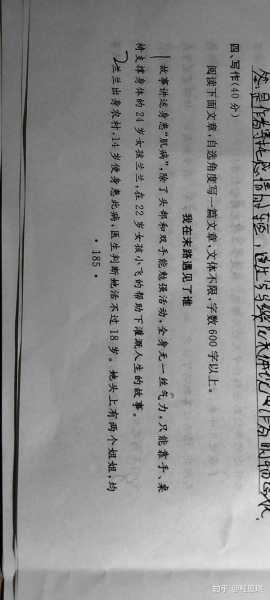 四、写作(40分)
阅读下面文章,自选角度写一篇文章,文体不限,字数600字以上。
我在末路遇见了谁
故事讲述身患“肌病”,除了头部和双手能勉强活动,全身无一丝气力,只能靠手、桌
椅支撑身体的24岁女孩兰兰,在22岁女孩小飞的帮助下灌溉人生的故事。
兰兰出身农村,14岁便身患此病,医生判断她活不过18岁。她头上有两个姐姐,均
·185·